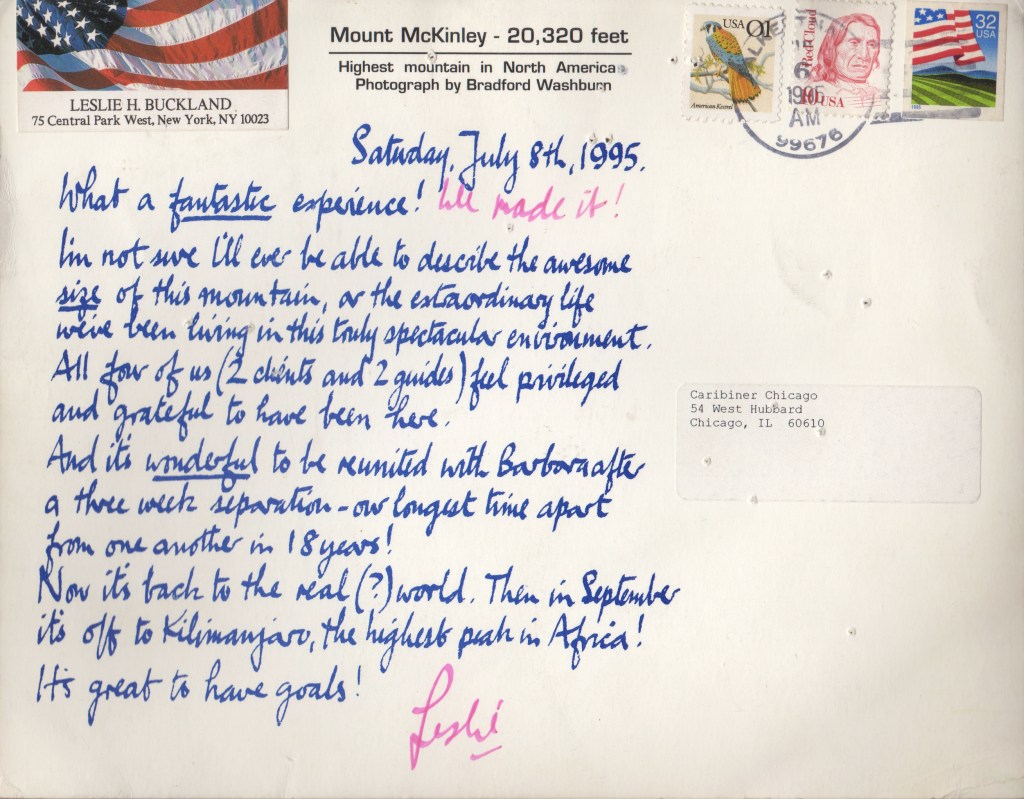 LESLIE H. BUCKLAND
75 Central Park West, New York, NY 10023
Mount McKinley - 20,320 feet
Highest mountain in North America
Photograph by Bradford Washburn
USA 01
American Kestrel
Red Cloud
10 USA
32
USA
1995
AM
99676
Saturday, July 8th, 1995.
What a fantastic experience! We made it!
I'm not sure I'll ever be able to describe the awesome
size of this mountain, or the extraordinary life
we've been living in this truly spectacular environment.
All four of us (2 clients and 2 guides) feel privileged
and grateful to have been here.
And it's wonderful to be reunited with Barbara after
a three week separation - our longest time apart
from one another in 18 years!
Now it's back to the real (?) world. Then in September
it's off to Kilimanjaro, the highest peak in Africa!
It's great to have goals!
Leslie
Caribiner Chicago
54 West Hubbard
Chicago, IL 60610